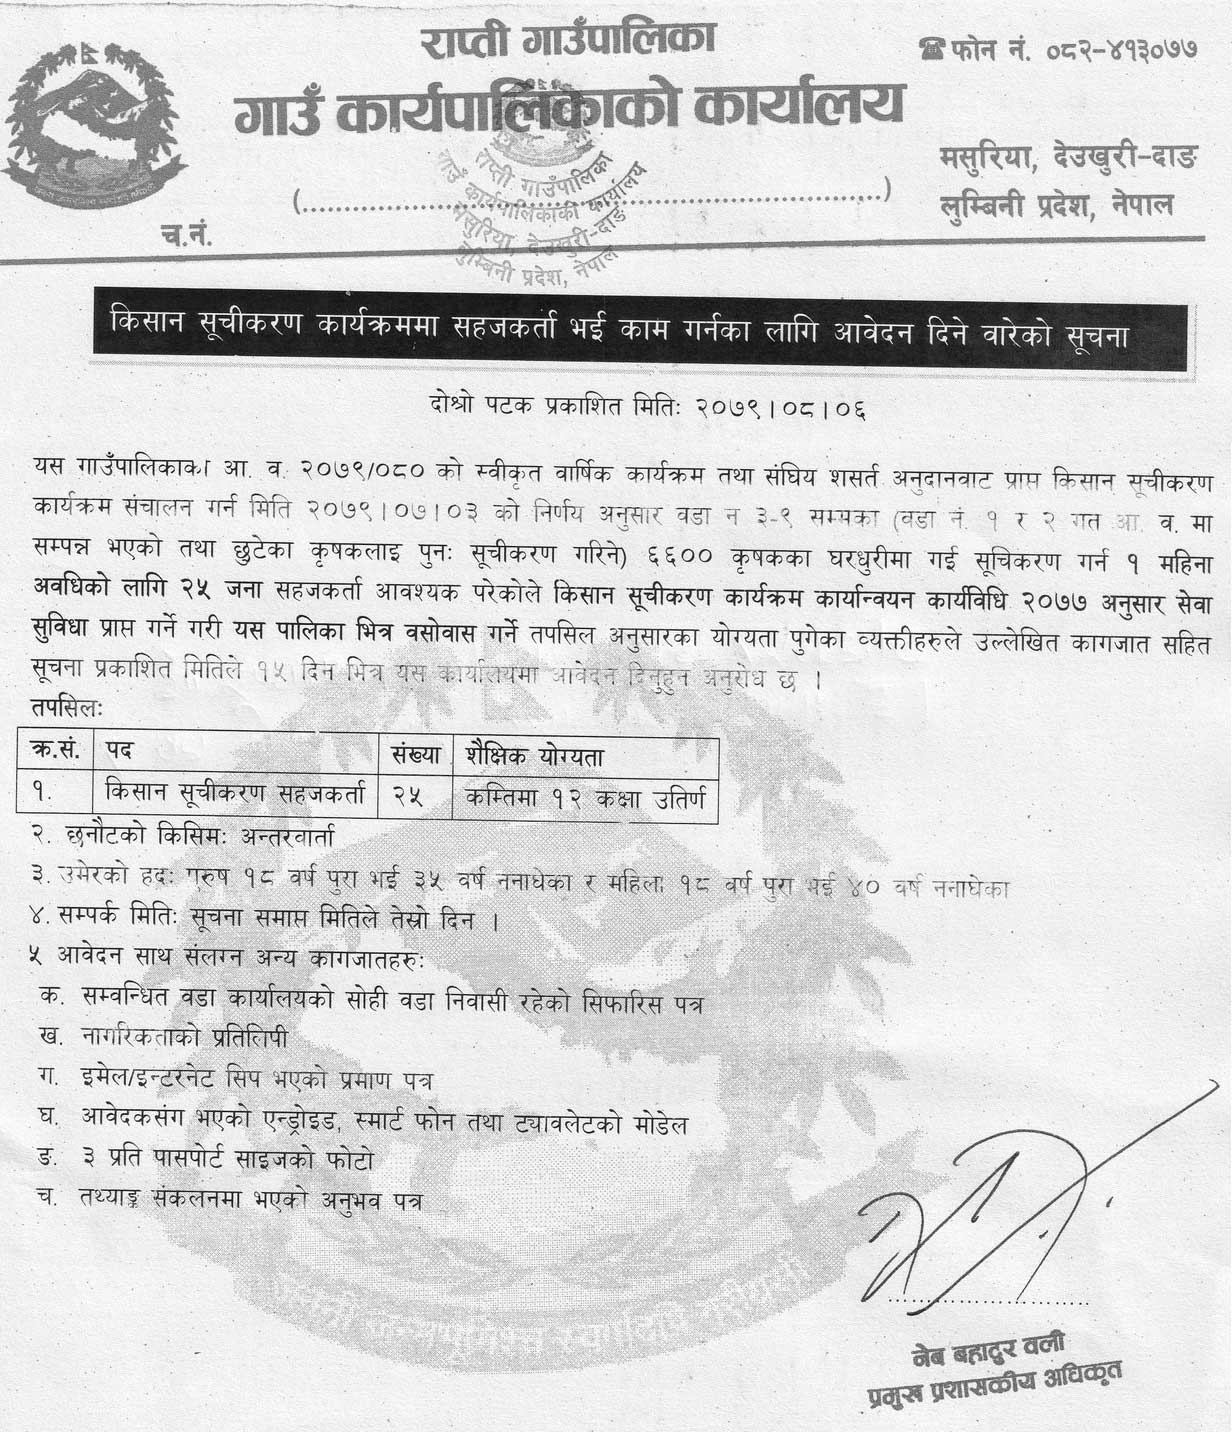 राप्ती गाउँपालिका
गाउँ कार्यपालिकाको कार्यालय
फोन नं. ०८२-४१३०७७
मसुरिया, देउखुरी-दाङ
लुम्बिनी प्रदेश, नेपाल
(........................................................)
राप्ती गाउँपालिका
गाउँ कार्यपालिकाको कार्यालय
मसुरिया, देउखुरी-दाङ
लुम्बिनी प्रदेश, नेपाल
च.नं.
किसान सूचीकरण कार्यक्रममा सहजकर्ता भई काम गर्नका लागि आवेदन दिने वारेको सूचना
दोश्रो पटक प्रकाशित मितिः २०७९।०८।०६
यस गाउँपालिकाका आ. व. २०७९/०८० को स्वीकृत वार्षिक कार्यक्रम तथा संघिय शसर्त अनुदानवाट प्राप्त किसान सूचीकरण
कार्यक्रम संचालन गर्न मिति २०७९।०७।०३ को निर्णय अनुसार वडा न ३-९ सम्मका (वडा नं. १ र २ गत आ. व. मा
सम्पन्न भएको तथा छुटेका कृषकलाइ पुनः सूचीकरण गरिने) ६६०० कृषकका घरधुरीमा गई सूचिकरण गर्न १ महिना
अवधिको लागि २५ जना सहजकर्ता आवश्यक परेकोले किसान सूचीकरण कार्यक्रम कार्यान्वयन कार्यविधि २०७७ अनुसार सेवा
सुविधा प्राप्त गर्ने गरी यस पालिका भित्र वसोवास गर्ने तपसिल अनुसारका योग्यता पुगेका व्यक्तीहरुले उल्लेखित कागजात सहित
सूचना प्रकाशित मितिले १५ दिन भित्र यस कार्यालयमा आवेदन दिनुहुन अनुरोध छ ।
तपसिलः
क्र.सं. पद संख्या शैक्षिक योग्यता
१. किसान सूचीकरण सहजकर्ता २५ कम्तिमा १२ कक्षा उतिर्ण
२. छनौटको किसिमः अन्तरवार्ता
३. उमेरको हदः पुरुष १८ वर्ष पुरा भई ३५ वर्ष ननाघेका र महिला १८ वर्ष पुरा भई ४० वर्ष ननाघेका
४. सम्पर्क मितिः सूचना समाप्त मितिले तेस्रो दिन ।
५ आवेदन साथ संलग्न अन्य कागजातहरुः
क. सम्वन्धित वडा कार्यालयको सोही वडा निवासी रहेको सिफारिस पत्र
ख. नागरिकताको प्रतिलिपी
ग. इमेल/इन्टरनेट सिप भएको प्रमाण पत्र
घ. आवेदकसंग भएको एन्ड्रोइड, स्मार्ट फोन तथा ट्यावलेटको मोडेल
ङ. ३ प्रति पासपोर्ट साइजको फोटो
च. तथ्याङ्क संकलनमा भएको अनुभव पत्र
नेब बहादुर वली
प्रमुख प्रशासकीय अधिकृत